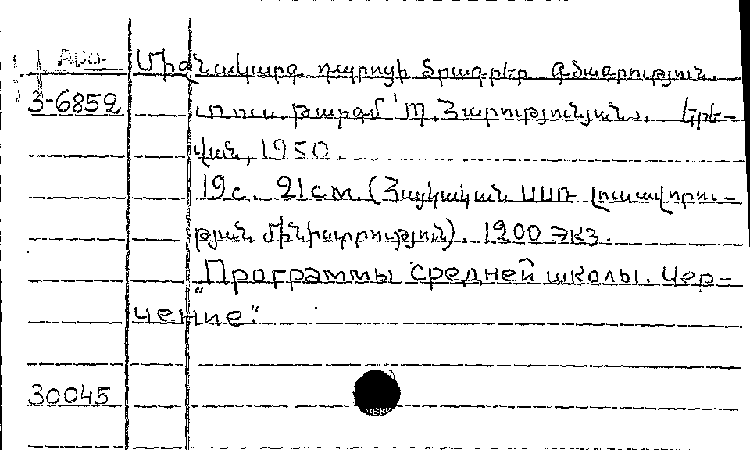 Միջնակարգ դպրոցի ծրագրեր գծագրության
3-6852 ռուս. թարգմ. Պ. Հարությունյան. Երե-
վան, 1950.
19с. 21см. (Հայկական ՍՍՌ լուսավորու-
թյան մինիստրություն). 1200 экз.
"Программы средней школы. Чер-
чение".
30045